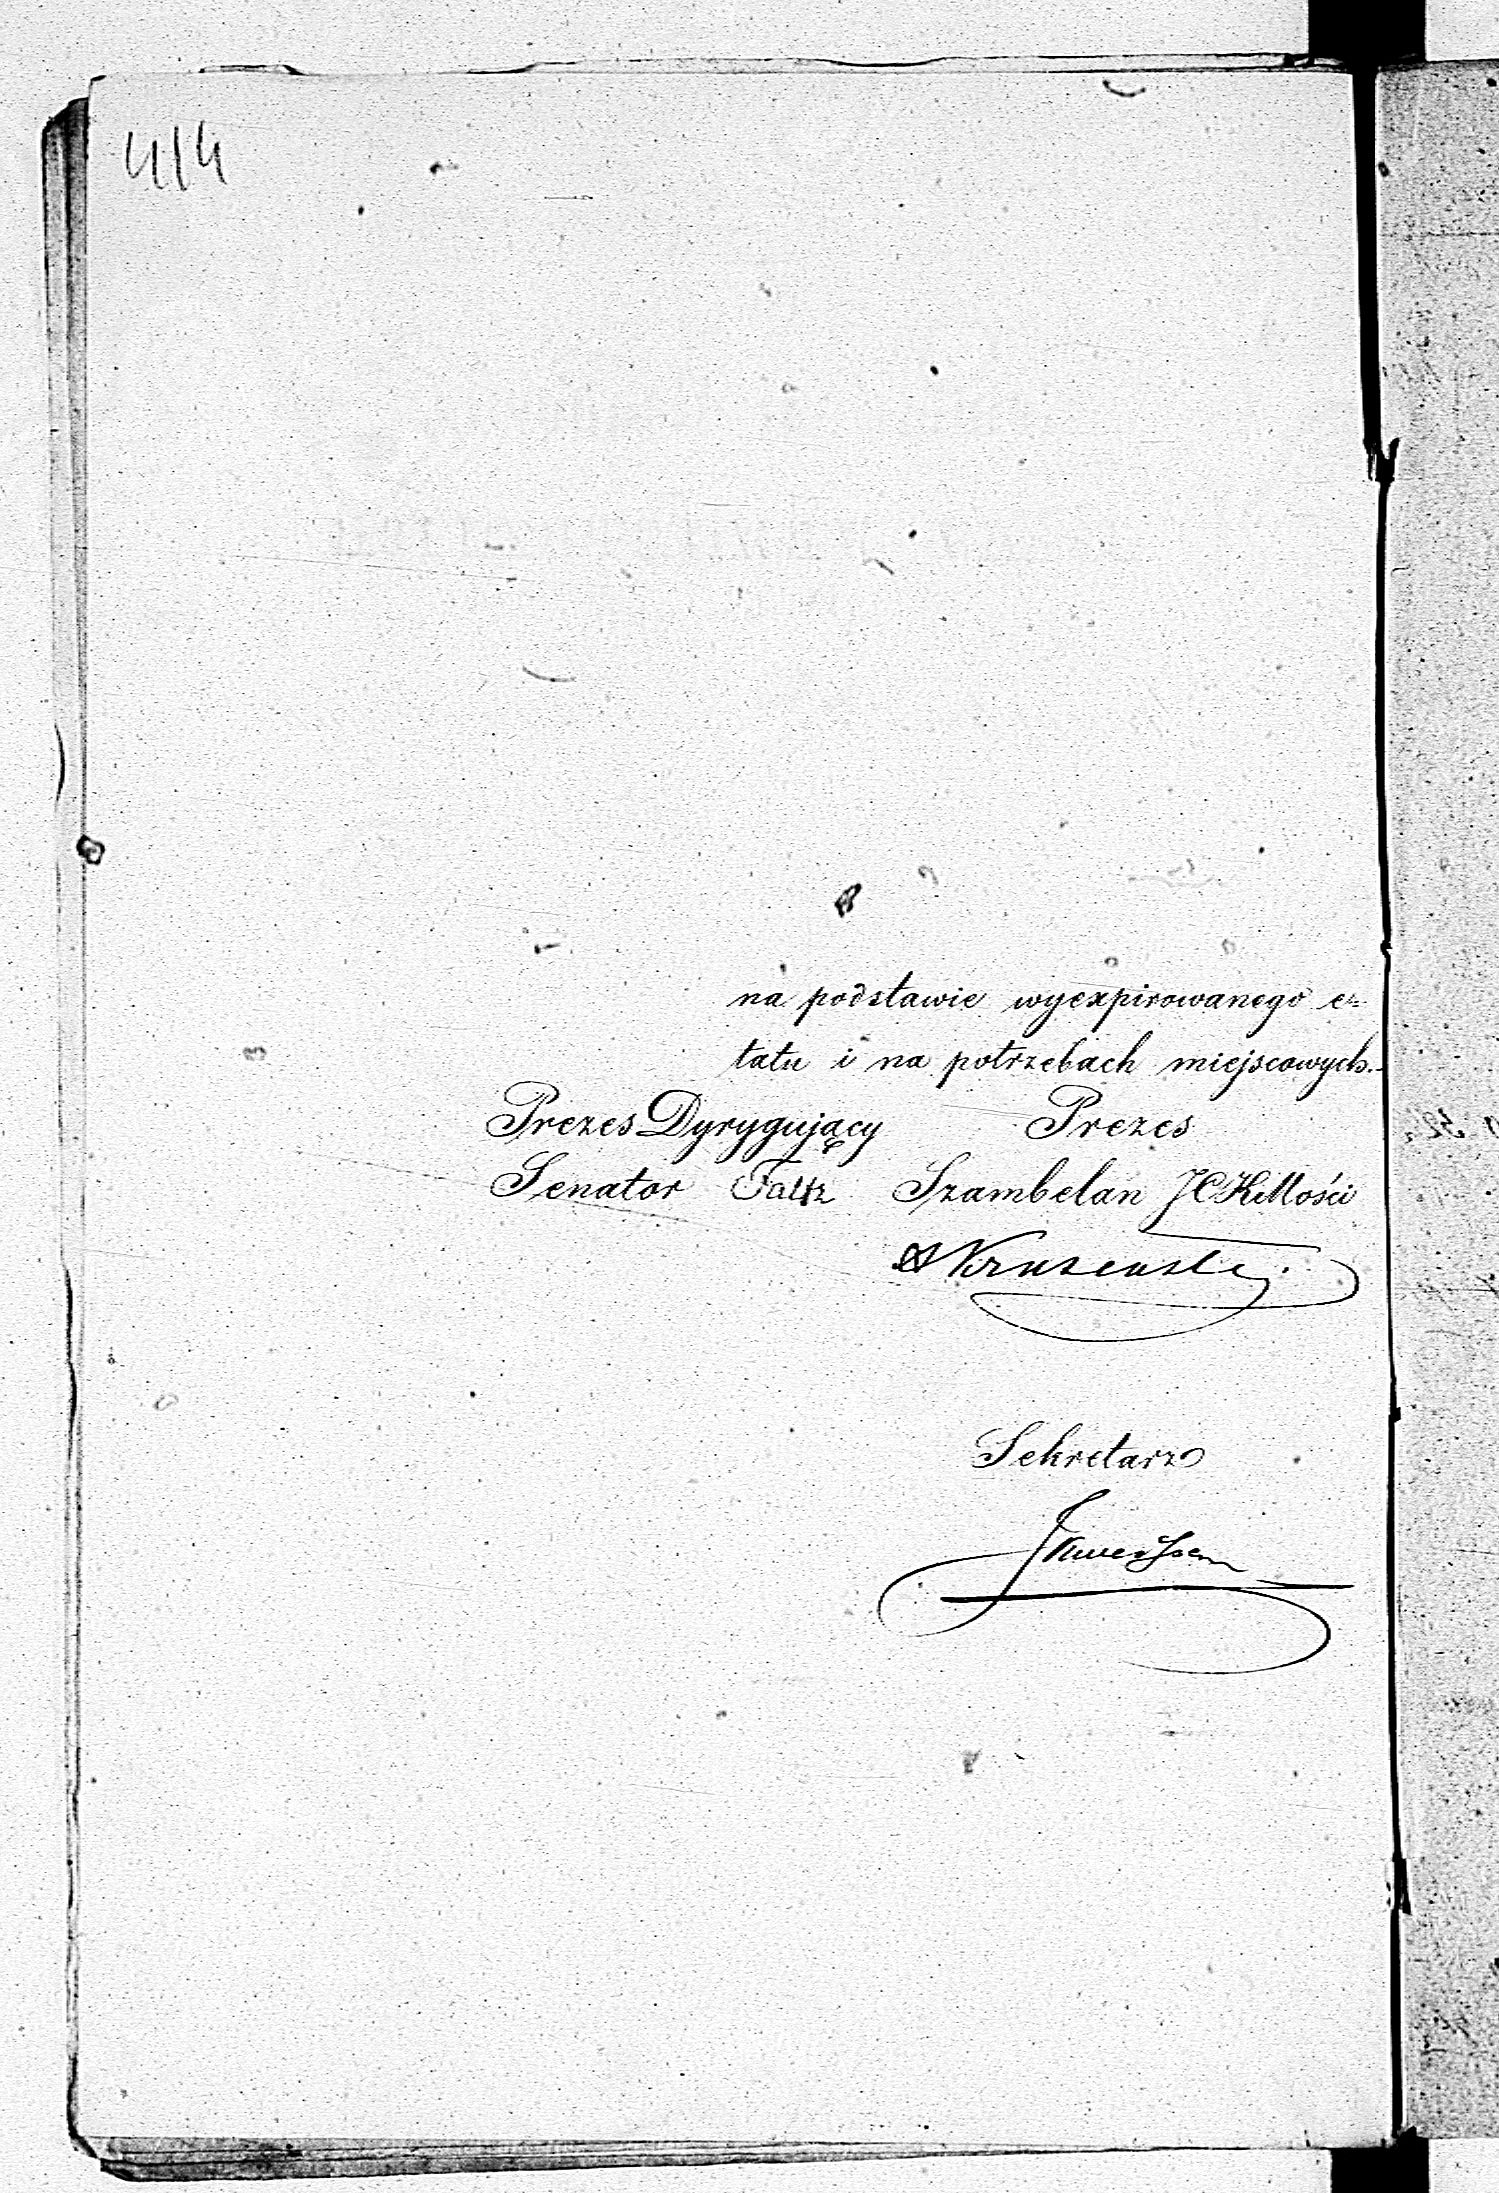 414
na podstawie wyexpirowanego e-
tatu i na potrzebach miejscowych.
Prezes Dyrygujący Prezes
Senator Faltz Szambelan JCKMości
AKruzenster
Sekretarz